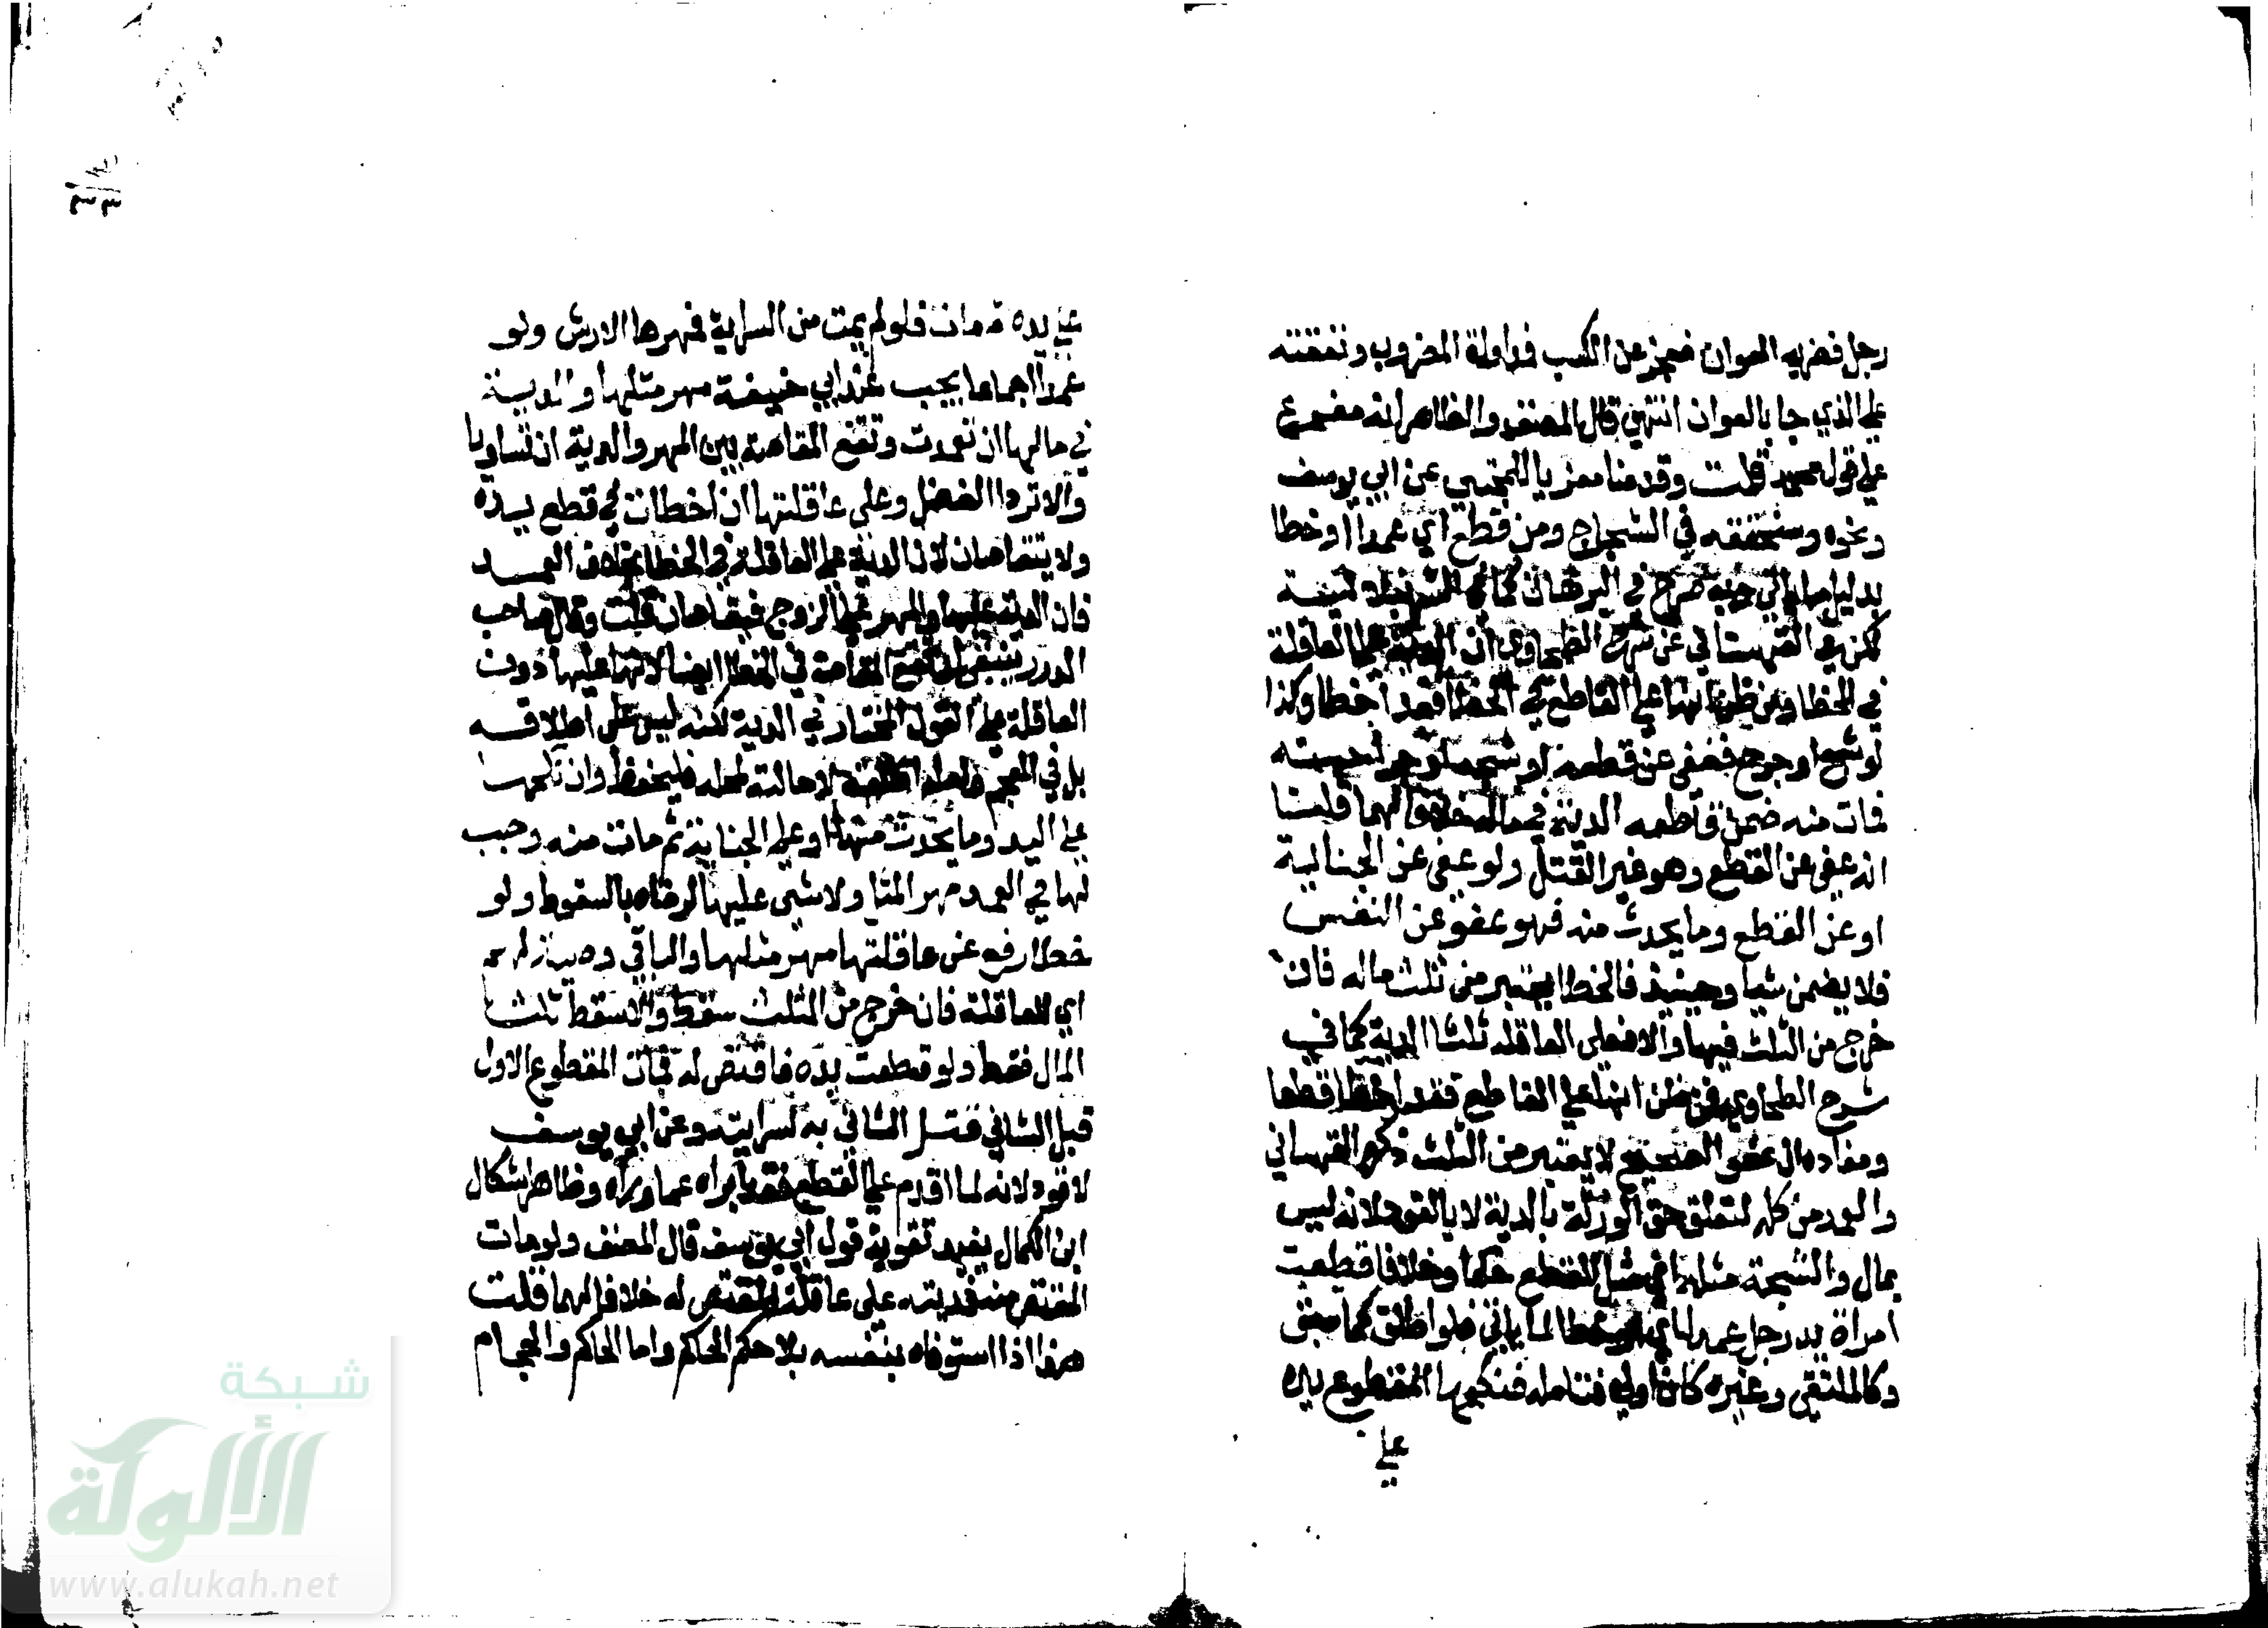 رجل فضربه العوان فعجز عن الكسب فداواة المضروب ونفقته
على الذي جا بالعوان انتهى قال المصنف والظاهر انه مفرع
على قول محمد قلت وقدمنا معزيا للمجتبى عن ابي يوسف
ونحوه وسنحققه في الشجاج ومن قطع اي عمدا او خطا
بدليل ما ياتي وبه صرح في البرهان كما في
لكن في القهستاني عن شرح الطحاوي ان الدية على العاقلة
في الخطا ومن ظن انها على القاطع في الخطا فقد اخطا وكذا
لو شج او جرح فعفى عن قطعه او شجته او جراحته
فمات منه ضمن قاطعه الدية في ماله خلافا لهما قلنا
انه عفى عن القطع وهو غير القتل ولو عفى عن الجناية
او عن القطع وما يحدث منه فهو عفو عن النفس
فلا يضمن شيا وحينيذ فالخطا يعتبر من ثلث ماله فان
خرج من الثلث فبها والا فعلى العاقلة ثلثا الدية كما في
شرح الطحاوي فمن ظن انها على القاطع فقد اخطا قطعا
ومفاده ان عفو الصحيح لا يعتبر من الثلث ذكره القهستاني
والعمد من كله لتعلق حق الورثة بالدية لا بالقود لانه ليس
بمال والشجة مثله اي مثل القطع حكما وخلافا قطعت
امراة يد رجل عمدا اي او خطا لما ياتي فلو اطلق كما سبق
وكالملتقى وغيره كان اولى فتامله فنكحها المقطوع يده
على
على يده ثم مات فلو لم يمت من السراية فمهرها الارش ولو
عمدا اجماعا يجب عند ابي حنيفة مهر مثلها والدية
في مالها ان تعمدت وتقع المقاصة بين المهر والدية ان تساويا
والا ترد الفضل وعلى عاقلتها ان اخطات في قطع يده
ولا يتقاصان لان الدية على العاقلة في الخطا بخلاف العمد
فان الدية عليها والمهر على الزوج فيتقاصان قلت وقال صاحب
الدرر ينبغي ان تقع المقاصة في الخطا ايضا لانها عليها دون
العاقلة على القول المختار في الدية لكنه ليس على اطلاقه
بل في العجم ولعله اطلقه لاحالته لمحله فليحفظ وان نكحها
على اليد وما يحدث منها او على الجناية ثم مات منه وجب
لها في العمد مهر المثل ولا شى عليها لرضاه بالسقوط ولو
خطا رفع عن عاقلتها مهر مثلها والباقي وصية لهم
اي للعاقلة فان خرج من الثلث سقط والا سقط ثلث
المال فقط ولو قطعت يده فاقتص له فمات المقطوع الاول
قبل الثاني قتل الثاني به لسرايته وعن ابي يوسف
لا قود لانه لما اقدم على القطع فقد ابراه عما وراه وظاهر اشكال
ابن الكمال يفيد تقوية قول ابي يوسف قال المصنف ولو مات
المقتص منه فديته على عاقلة المقتص له خلافا لهما قلت
هذا اذا استوفاه بنفسه بلا حكم الحاكم واما الحاكم والحجام
شبكة
الألوكة
www.alukah.net